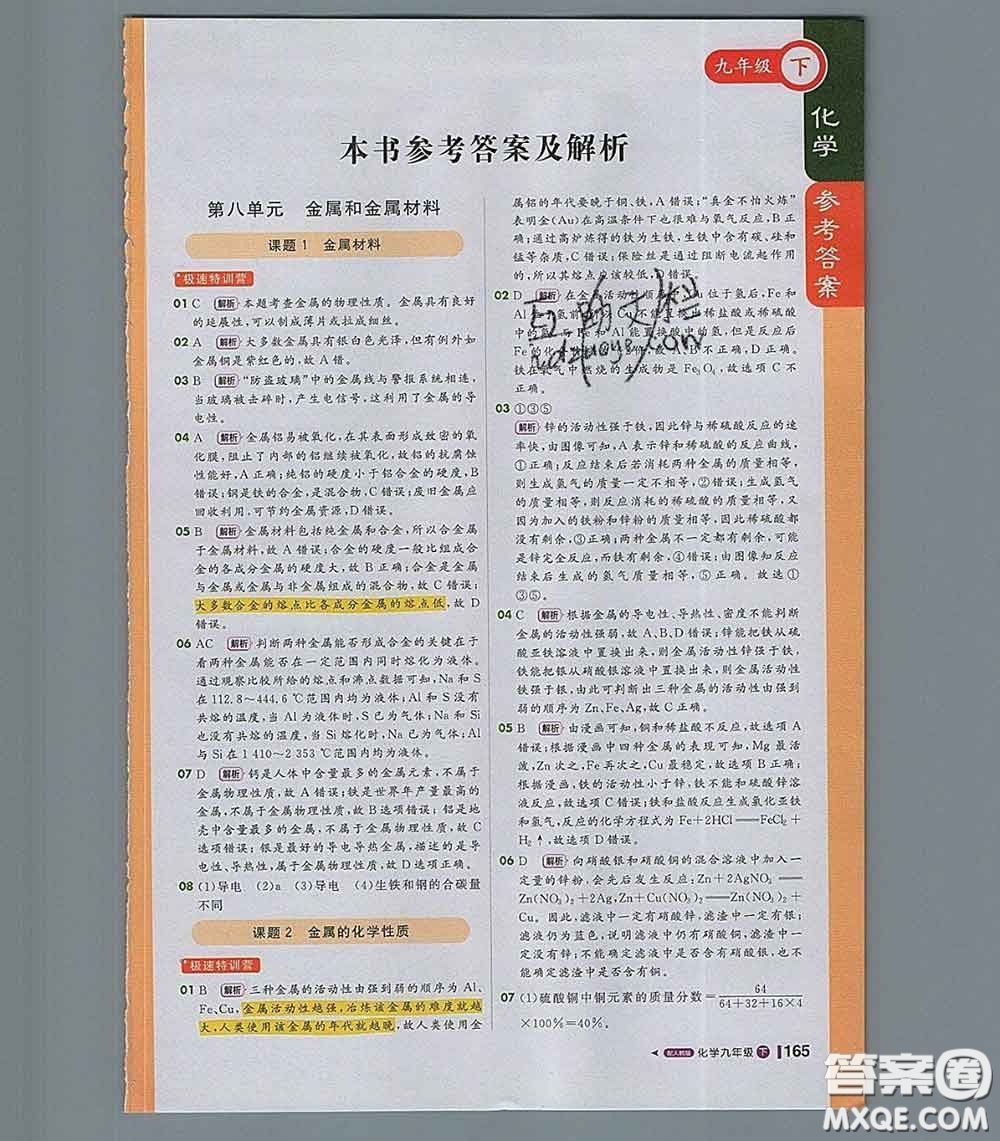 九年级 下
化学
参考答案
本书参考答案及解析
第八单元 金属和金属材料
课题1 金属材料
极速特训营
01 C 解析 本题考查金属的物理性质。金属具有良好
的延展性,可以制成薄片或拉成细丝。
02 A 解析 大多数金属具有银白色光泽,但有例外如
金属铜是紫红色的,故A错。
03 B 解析 “防盗玻璃”中的金属线与警报系统相连,
当玻璃被击碎时,产生电信号,这利用了金属的导
电性。
04 A 解析 金属铝易被氧化,在其表面形成致密的氧
化膜,阻止了内部的铝继续被氧化,故铝的抗腐蚀
性能好,A正确;纯铝的硬度小于铝合金的硬度,B
错误;钢是铁的合金,是混合物,C错误;废旧金属应
回收利用,可节约金属资源,D错误。
05 B 解析 金属材料包括纯金属和合金,所以合金属
于金属材料,故A错误;合金的硬度一般比组成合
金的各成分金属的硬度大,故B正确;合金是金属
与金属或金属与非金属组成的混合物,故C错误;
大多数合金的熔点比各成分金属的熔点低,故D
错误。
06 AC 解析 判断两种金属能否形成合金的关键在于
看两种金属能否在一定范围内同时熔化为液体。
通过观察比较所给的熔点和沸点数据可知,Na和S
在112.8～444.6℃范围内均为液体;Al和S没有
共熔的温度,当Al为液体时,S已为气体;Na和Si
也没有共熔的温度,当Si熔化时,Na已为气体;Al
与Si在1 410～2 353℃范围内均为液体。
07 D 解析 钙是人体中含量最多的金属元素,不属于
金属物理性质,故A错误;铁是世界年产量最高的
金属,不属于金属物理性质,故B选项错误;铝是地
壳中含量最多的金属,不属于金属物理性质,故C
选项错误;银是最好的导电导热金属,描述的是导
电性、导热性,属于金属物理性质,故D选项正确。
08 (1)导电 (2)a (3)导电 (4)生铁和钢的含碳量
不同
课题2 金属的化学性质
极速特训营
01 B 解析 三种金属的活动性由强到弱的顺序为Al、
Fe、Cu,金属活动性越强,冶炼该金属的难度就越
大,人类使用该金属的年代就越晚,故人类使用金
属铝的年代要晚于铜、铁,A错误;“真金不怕火炼”
表明金(Au)在高温条件下也很难与氧气反应,B正
确;通过高炉炼得的铁为生铁,生铁中含有碳、硅和
锰等杂质,C错误;保险丝是通过阻断电流起作用
的,所以其熔点应该较低,D错误。
02 D 解析 在金属活动性顺序中,Cu位于氢后,Fe和
Al氢前,可以置换出稀盐酸或稀硫酸
中的氢,Fe和Al能置换酸中的氢,但是反应
后Fe的化合价,故A、B不正确,D正确。
铁在氧气中燃烧的生成物是Fe₃O₄,故选项C不
正确。
03 ①③⑤
解析 锌的活动性强于铁,因此锌与稀硫酸反应的速
率快,由图像可知,A表示锌和硫酸的反应曲线,
①正确;反应结束后若消耗两种金属的质量相等,
则生成氢气的质量一定不相等,②错误;生成氢气
的质量相等,则反应消耗的稀硫酸的质量相等,又
因为加入的铁粉和锌粉的质量相等,因此稀硫酸都
没有剩余,③正确;两种金属不一定都有剩余,可能
是锌完全反应,而铁有剩余,④错误;由图像知反应
结束后生成的氢气质量相等,⑤正确。故选①
③⑤。
04 C 解析 根据金属的导电性、导热性、密度不能判断
金属的活动性强弱,故A、B、D错误;锌能把铁从硫
酸亚铁溶液中置换出来,则锌的活动性强于铁,
铁能把银从硝酸银溶液中置换出来,则金属活动性
铁强于银,由此可判断出三种金属的活动性由强到
弱的顺序为Zn、Fe、Ag,故C正确。
05 B 解析 由漫画可知,铜和稀盐酸不反应,故选项A
错误;根据漫画中四种金属的表现可知,Mg最活
泼,Zn次之,Fe再次之,Cu最稳定,故选项B正确;
根据漫画,铁的活动性小于锌,铁不能和硫酸锌溶
液反应,故选项C错误;铁和盐酸反应生成氯化亚铁
和氢气,反应的化学方程式为Fe+2HCl══FeCl₂+
H₂↑,故选项D错误。
06 D 解析 向硝酸银和硝酸铜的混合溶液中加入一
定量的锌粉,会先后发生反应:Zn+2AgNO₃══
Zn(NO₃)₂+2Ag,Zn+Cu(NO₃)₂══Zn(NO₃)₂+
Cu。因此,滤液中一定有硝酸锌,滤渣中一定有银;
滤液仍为蓝色,说明滤液中一定有硝酸铜,但滤渣
中一定没有锌;不能确定滤液中是否有硝酸银,不
能确定滤渣中是否含有铜。
07 (1)硫酸铜中铜元素的质量分数=64/(64+32+16×4)
×100%=40%。
配人教版 化学九年级 下 165
答案圈
MXQE.COM